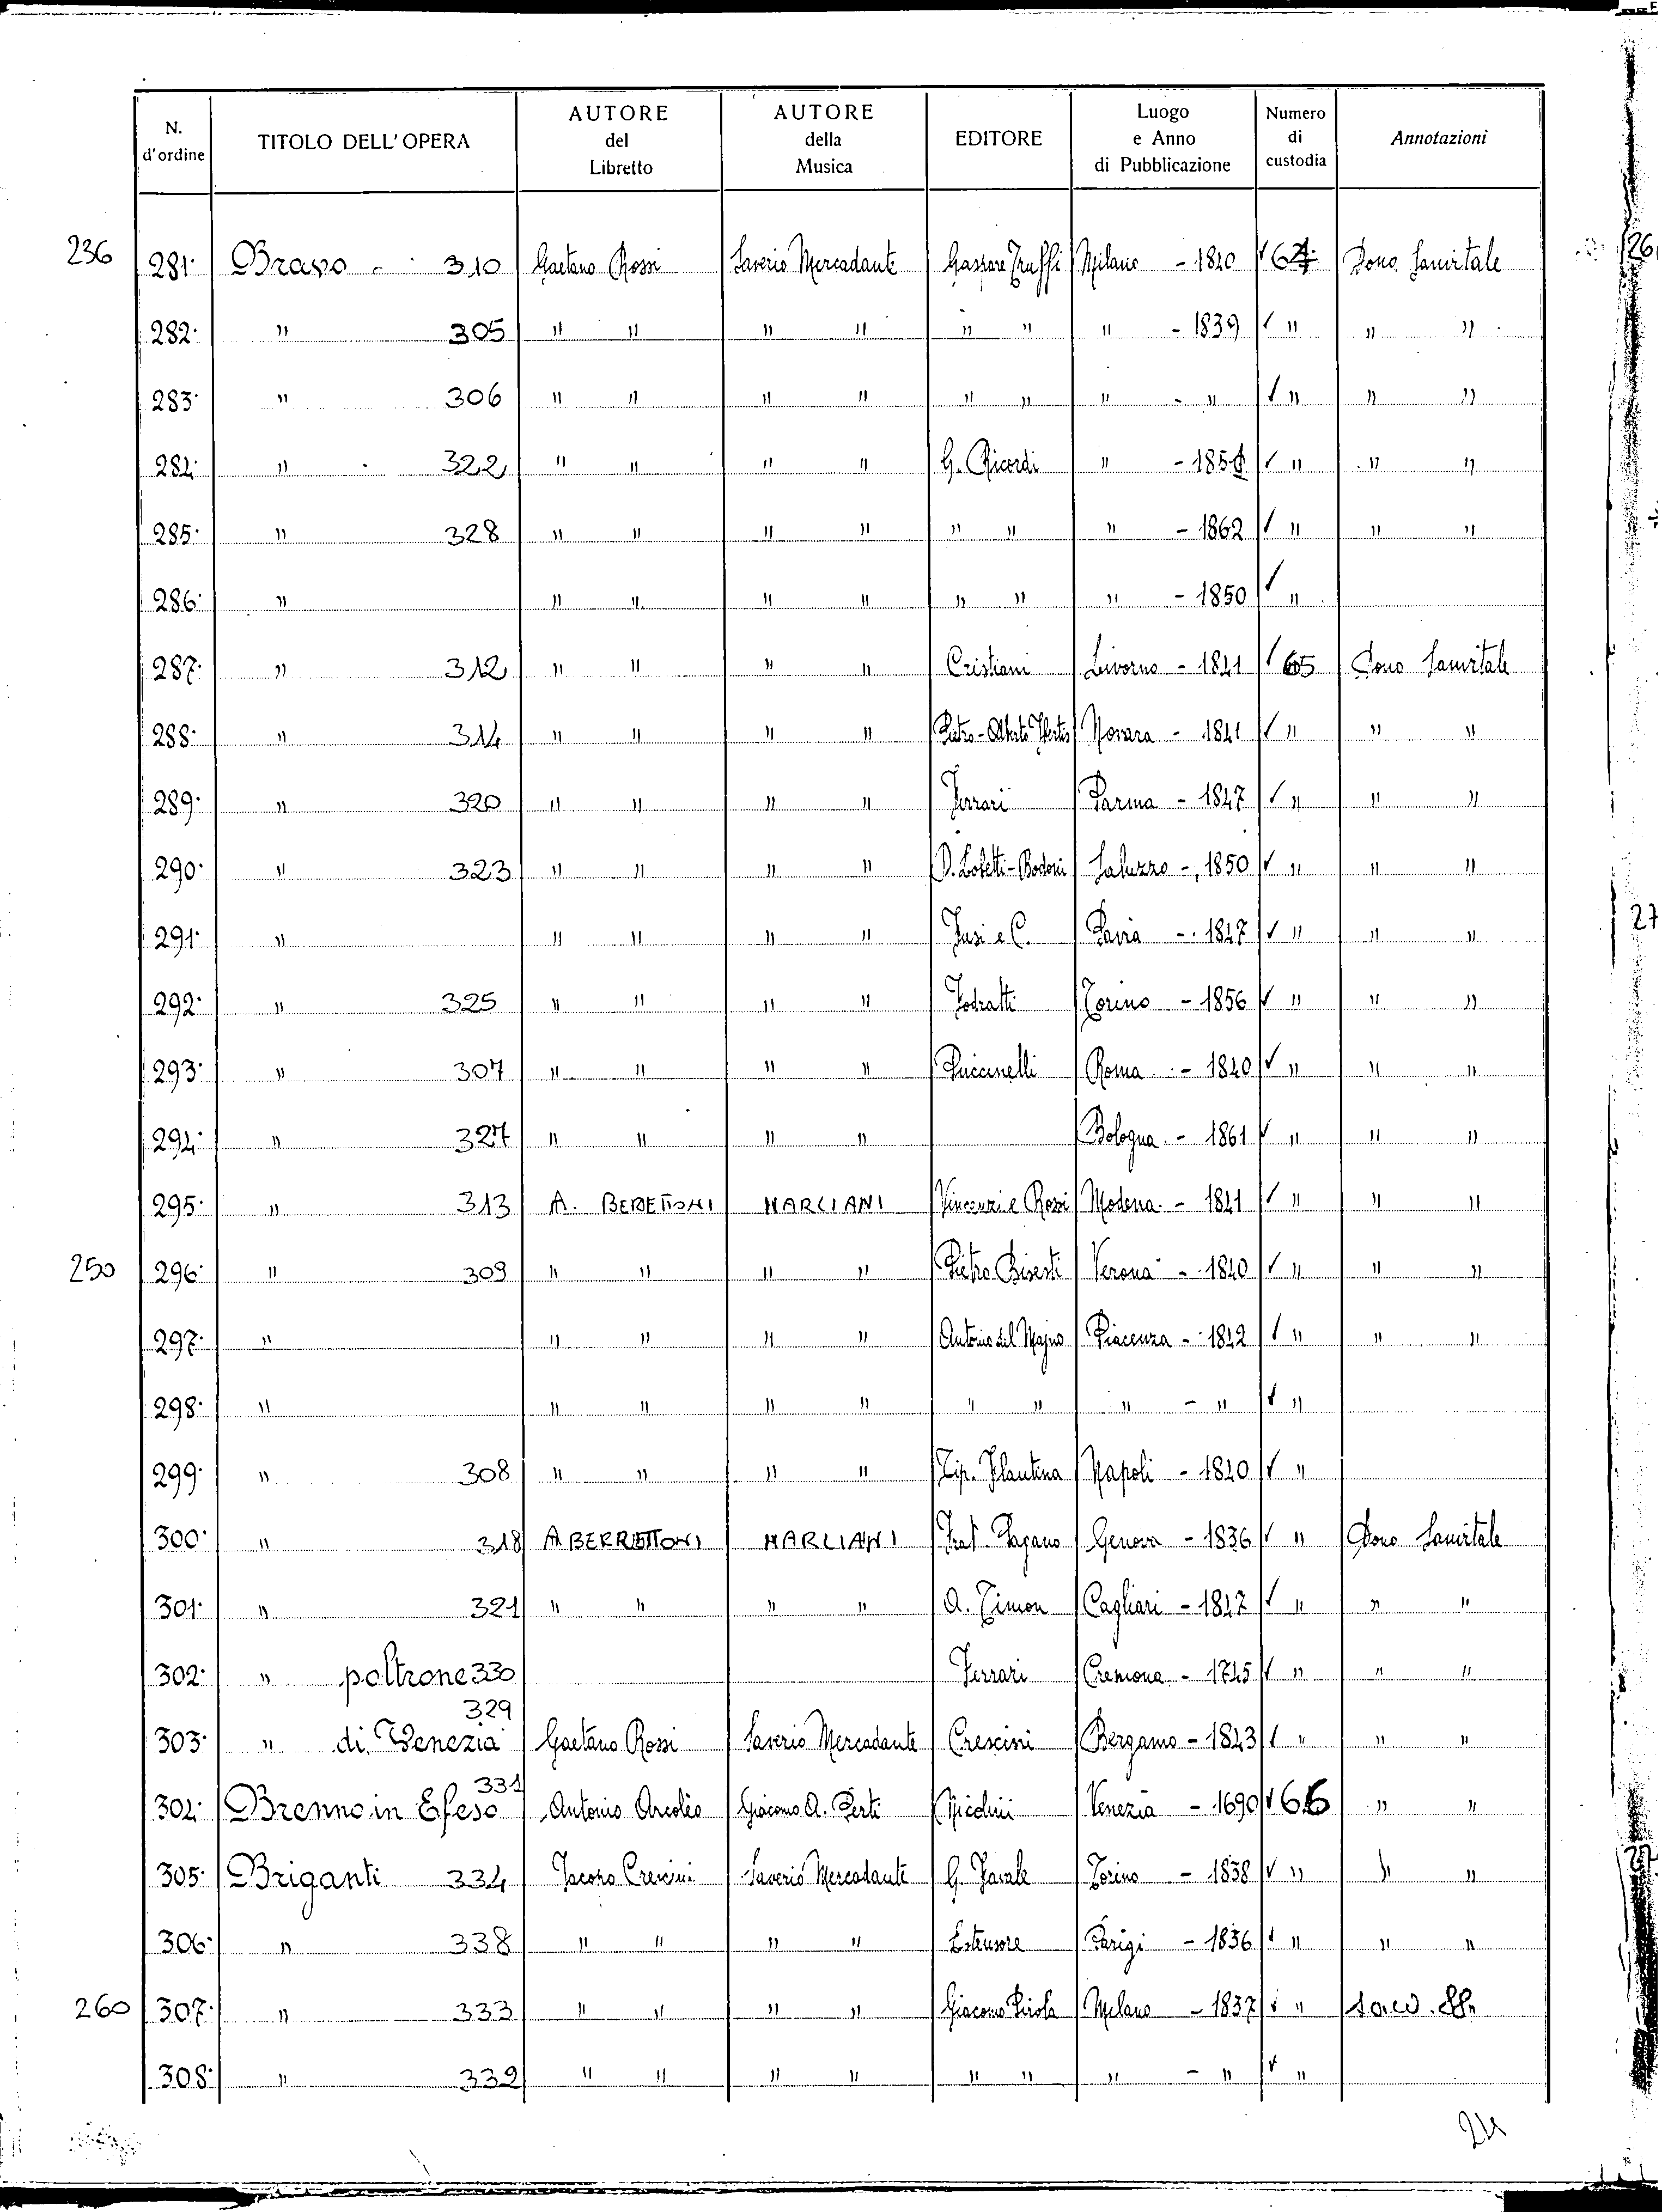 N. d'ordine TITOLO DELL'OPERA AUTORE del Libretto AUTORE della Musica EDITORE Luogo e Anno di Pubblicazione Numero di custodia Annotazioni
236 281· Bravo 310 Gaetano Rossi Saverio Mercadante Gaspare Truffi Milano - 1840 √ 64 Dono Sanvitale 26
282· " 305 " " " " " " " - 1839 √ " " "
283· " 306 " " " " " " " - " √ " " "
284· " 322 " " " " G. Ricordi " - √ " " "
285· " 328 " " " " " " " - 1862 √ " " "
286· " " " " " " " " - 1850 √ "
287· " 312 " " " " Cristiani Livorno - 1841 √ 65 Dono Sanvitale
288· " 314 " " " " Pietro-Alberto Novara - 1841 √ " " "
289· " 320 " " " " Ferrari Parma - 1847 √ " " "
290· " 323 " " " " D. Lobetti-Bodoni Saluzzo - 1850 √ " " "
291· " " " " " Fusi e C. Pavia - 1847 √ " " " 27
292· " 325 " " " " Fodratti Torino - 1856 √ " " "
293· " 307 " " " " Puccinelli Roma - 1840 √ " " "
294· " 327 " " " " Bologna - 1861 √ " " "
295· " 313 A. BERETTONI MARLIANI Vincenzi e Rossi Modena - 1841 √ " " "
250 296· " 309 " " " " Pietro Bisesti Verona - 1840 √ " " "
297· " " " " " Antonio del Majno Piacenza - 1842 √ " " "
298· " " " " " " " " - " √ "
299· " 308 " " " " Tip. Flautina Napoli - 1840 √ "
300· " 318 A BERRETTONI MARLIANI Frat. Pagano Genova - 1836 √ " Dono Sanvitale
301· " 321 " " " " A. Timon Cagliari - 1847 √ " " "
302· " poltrone 330 Ferrari Cremona - 1745 √ " " "
303· " di Venezia 329 Gaetano Rossi Saverio Mercadante Crescini Bergamo - 1843 √ " " "
304· Brenno in Efeso 331 Antonio Arcoleo Giacomo A. Perti Nicolini Venezia - 1690 √ 66 " "
305· Briganti 334 Jacopo Crescini Saverio Mercadante G. Favale Torino - 1838 √ " " "
306· " 338 " " " " Estensore Parigi - 1836 √ " " "
260 307· " 333 " " " " Giacomo Pirola Milano - 1837 √ "
308· " 339 " " " " " " " - " √ "
24